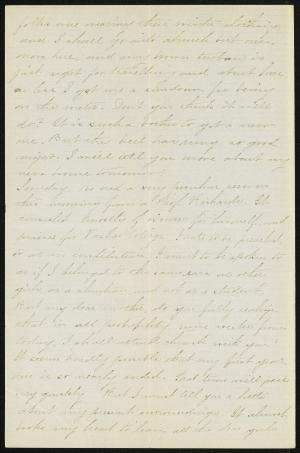 folks are wearing their winter clothing
and I shall go into church but once
more here, and my brown turban is
just right for travelling and about here,
unless I get me a sundown for being
on the water. Don't you think it will
do? It is such a bother to get a new
one. But the bell has rung so good
night. I will tell you more about my
new home tomorrow.
Sunday. We had a very peculiar sermon
this morning from a Prof. Richards. It
consisted mostly of for himself, and
praise for Vassar College. I hate it so preached,
or as an institution. I want to be spoken to
as if I belonged to the same race as other
girls, as a and not as a student.
But my dear mother, do you fully realize
that in all probability, nine weeks from
today, I shall attend church with you?
It seems hardly possible that my first year
here is so nearly ended. That time will pass
very quickly. But I must tell you a little
about my present surroundings. It almost
broke my heart to leave all the dear girls